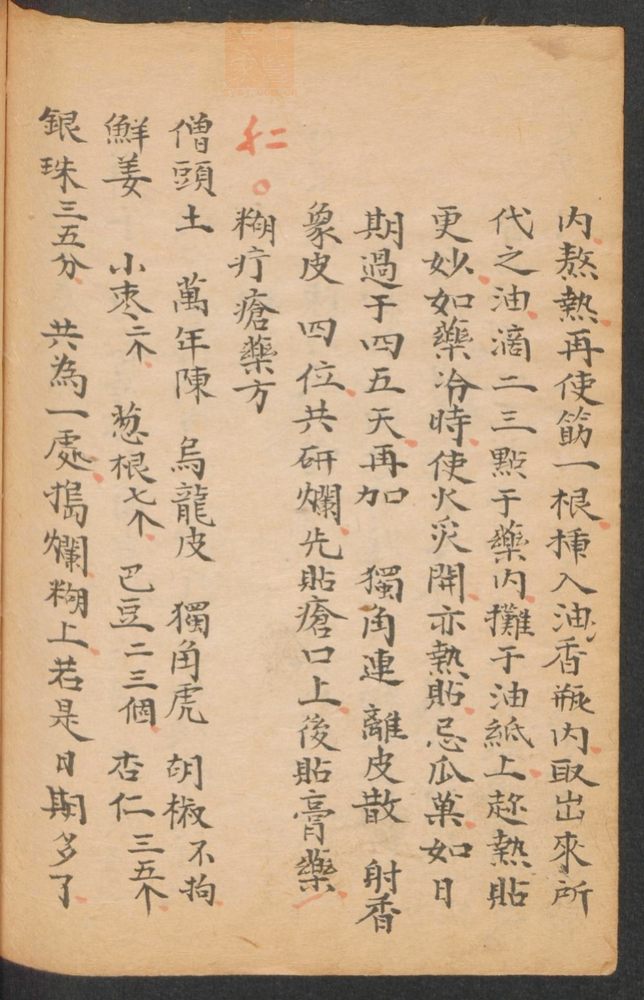 内熬熱再使筯一根揷入油香瓶内取出來所
代之油滴二三點于藥内攤于油紙上趂熱貼
更妙如藥冷時使火炙開亦熱貼忌瓜菓如日
期過于四五天再加　獨角連　離皮散　射香
象皮　四位共研爛先貼瘡口上後貼膏藥
糊疔瘡藥方
僧頭土　萬年陳　烏龍皮　獨角虎　胡椒不拘
鮮姜　小枣二个　葱根七个　巴豆二三個　杏仁三五个
銀珠三五分　共為一處搗爛糊上若是日期多了